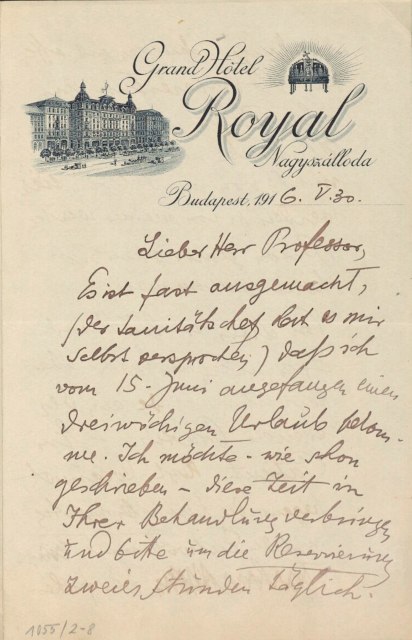 Grand Hôtel
Royal
Nagyszálloda
Budapest, 1916. V. 30.
Lieber Herr Professor,
Es ist fast ausgemacht,
(der Sanitätschef hat es mir
selbst versprochen) daß ich
vom 15. Juni angefangen einen
dreiwöchigen Urlaub bekom-
me. Ich möchte - wie schon
geschrieben - diese Zeit in
Ihrer Behandlung verbringen
und bitte um die Reservierung
zweier Stunden täglich.
1055/2-8